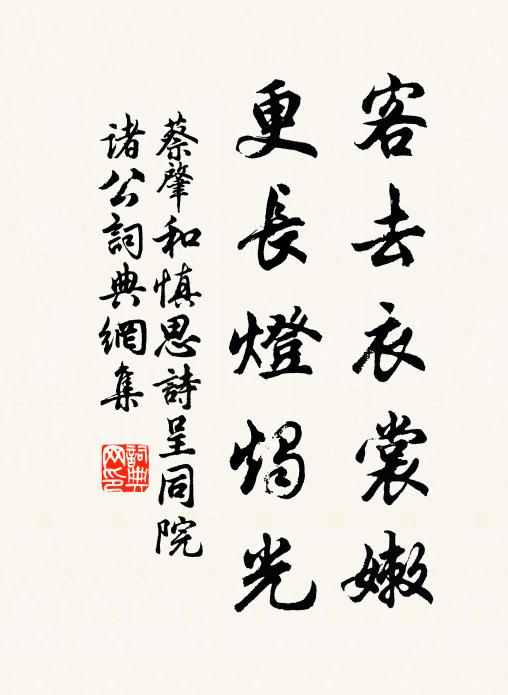 客去衣裳嫩
更長燈燭光
蔡肇和慎思詩呈同院
諸公詞典網集
詞典网印